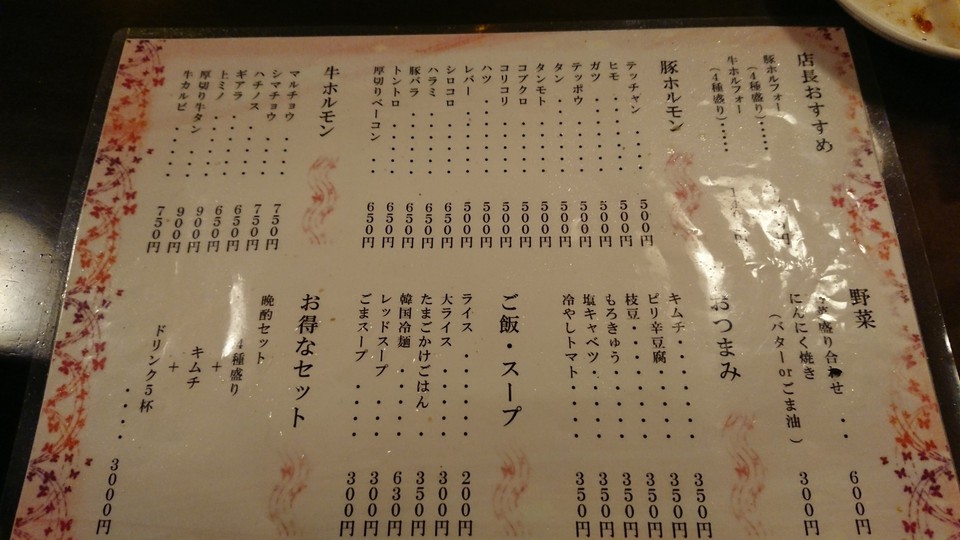 店長おすすめ
豚ホルフォー
(4種盛り)・・・・・
牛ホルフォー
(4種盛り)・・・・・
豚ホルモン
テッチャン・・・・500円
ヒモ・・・・・・500円
ガツ・・・・・・500円
テッポウ・・・・・500円
タン・・・・・・500円
タンモト・・・・・500円
コブクロ・・・・・500円
コリコリ・・・・・500円
ハツ・・・・・・500円
レバー・・・・・500円
シロコロ・・・・・650円
ハラミ・・・・・650円
豚バラ・・・・・650円
トントロ・・・・・650円
厚切りベーコン・・650円
牛ホルモン
マルチョウ・・・750円
シマチョウ・・・750円
ハチノス・・・・650円
ギアラ・・・・・650円
上ミノ・・・・・900円
厚切り牛タン・・・900円
牛カルビ・・・・750円
野菜
盛り合わせ・・600円
にんにく焼き
(バターorごま油)300円
おつまみ
キムチ・・・・・・350円
ピリ辛豆腐・・・・350円
枝豆・・・・・・350円
もろきゅう・・・・350円
塩キャベツ・・・・350円
冷やしトマト・・・350円
ご飯・スープ
ライス・・・・・200円
大ライス・・・・・300円
たまごかけごはん・350円
韓国冷麺・・・・630円
レッドスープ・・・300円
ごまスープ・・・300円
お得なセット
晩酌セット
種盛り
+
キムチ
+
ドリンク5杯
・・・・3000円